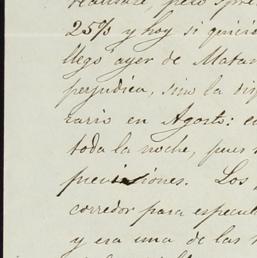 realizare, pero
25% y hoy si
llegó ayer de Matan
perjudica, sino la dis
rario en Agosto:
toda la noche, pues
previsiones. Los
corredor para especul
y era una de las